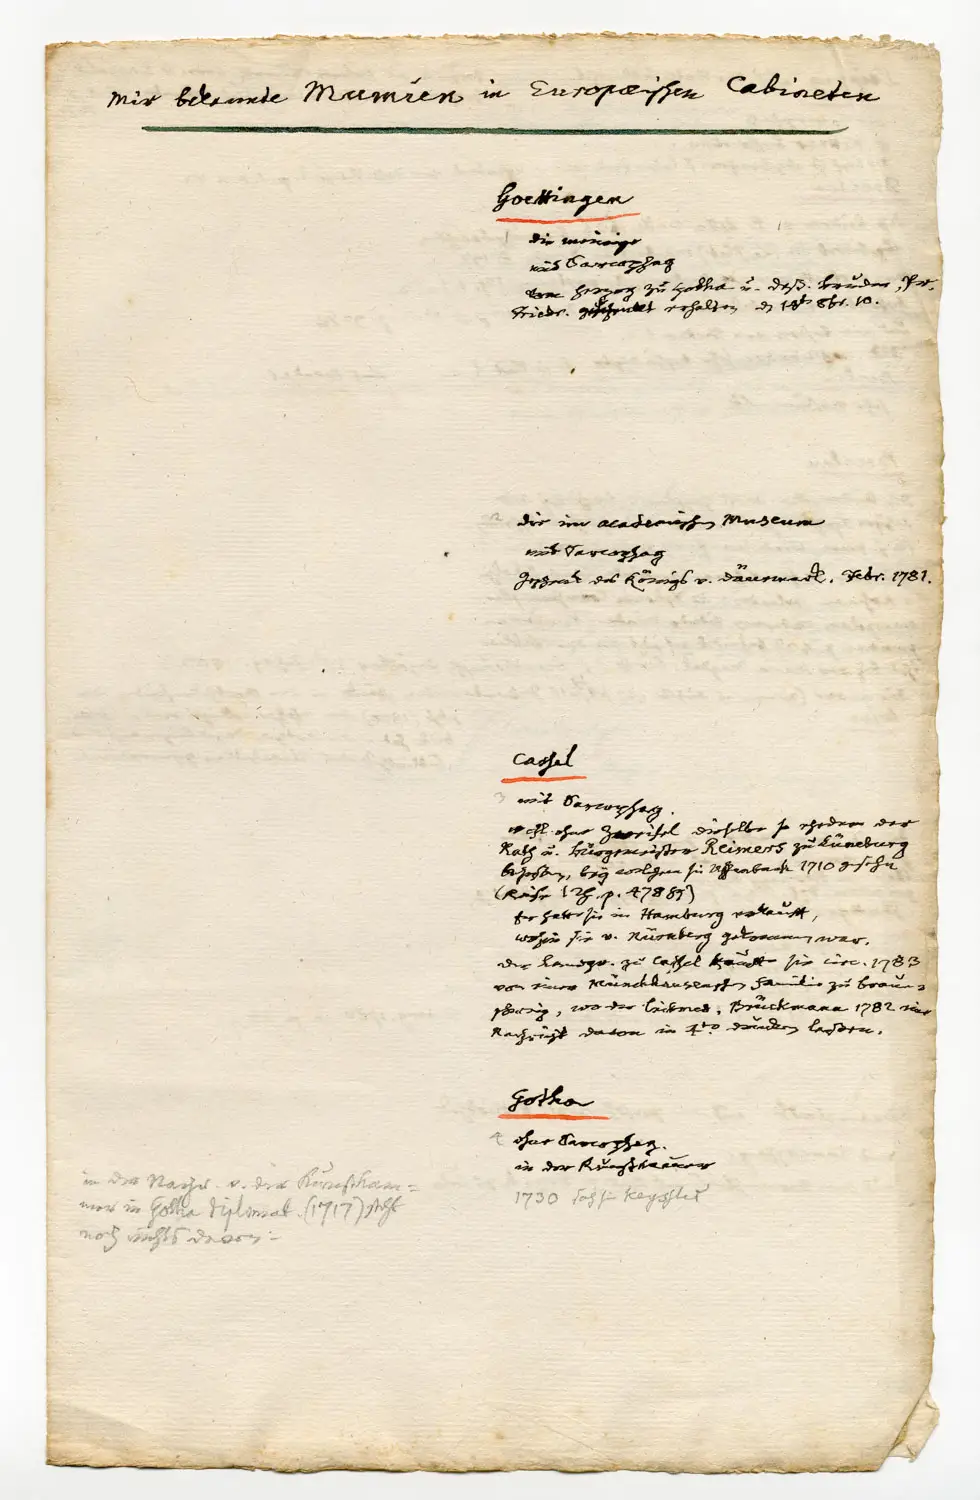 Mir bekannte Mumien in Europæischen Cabineten
Goettingen
die meinige
mit Sarcophag
vom Herzog zu Gotha u. dess. Bruder, Pr.
Friedr. erhalten d 18t 8br.
2 die im academischen Museum
mit Sarcophag
Geschenk des Königs v. Dännemark. Febr. 1781.
Cassel
3 mit Sarcophag.
ist ohne Zweifel dieselbe so ehedem der
Rath u. Bürgermeister Reimers zu Lüneburg
besessen, bey welchem sie Uffenbach 1710 gesehn
(Reise I Th. p. 478 sq)
Er hatte sie in Hamburg erkauft,
wohin sie v. Nürnberg gekommen war.
der Landgr. zu Cassel kaufte sie circ. 1783
von einer Münchhausenschen Familie zu Braun-
schweig, wo der Leibmed. Brückmann 1782 eine
Nachricht davon in 4to drucken lassen.
Gotha
4 ohne Sarcophag.
in der Kunstkammer
1730 sah sie Keyssler
in der Nachr. v. der Kunstkam=
mer in Gotha diplomat. (1717) steht
noch nichts davon.